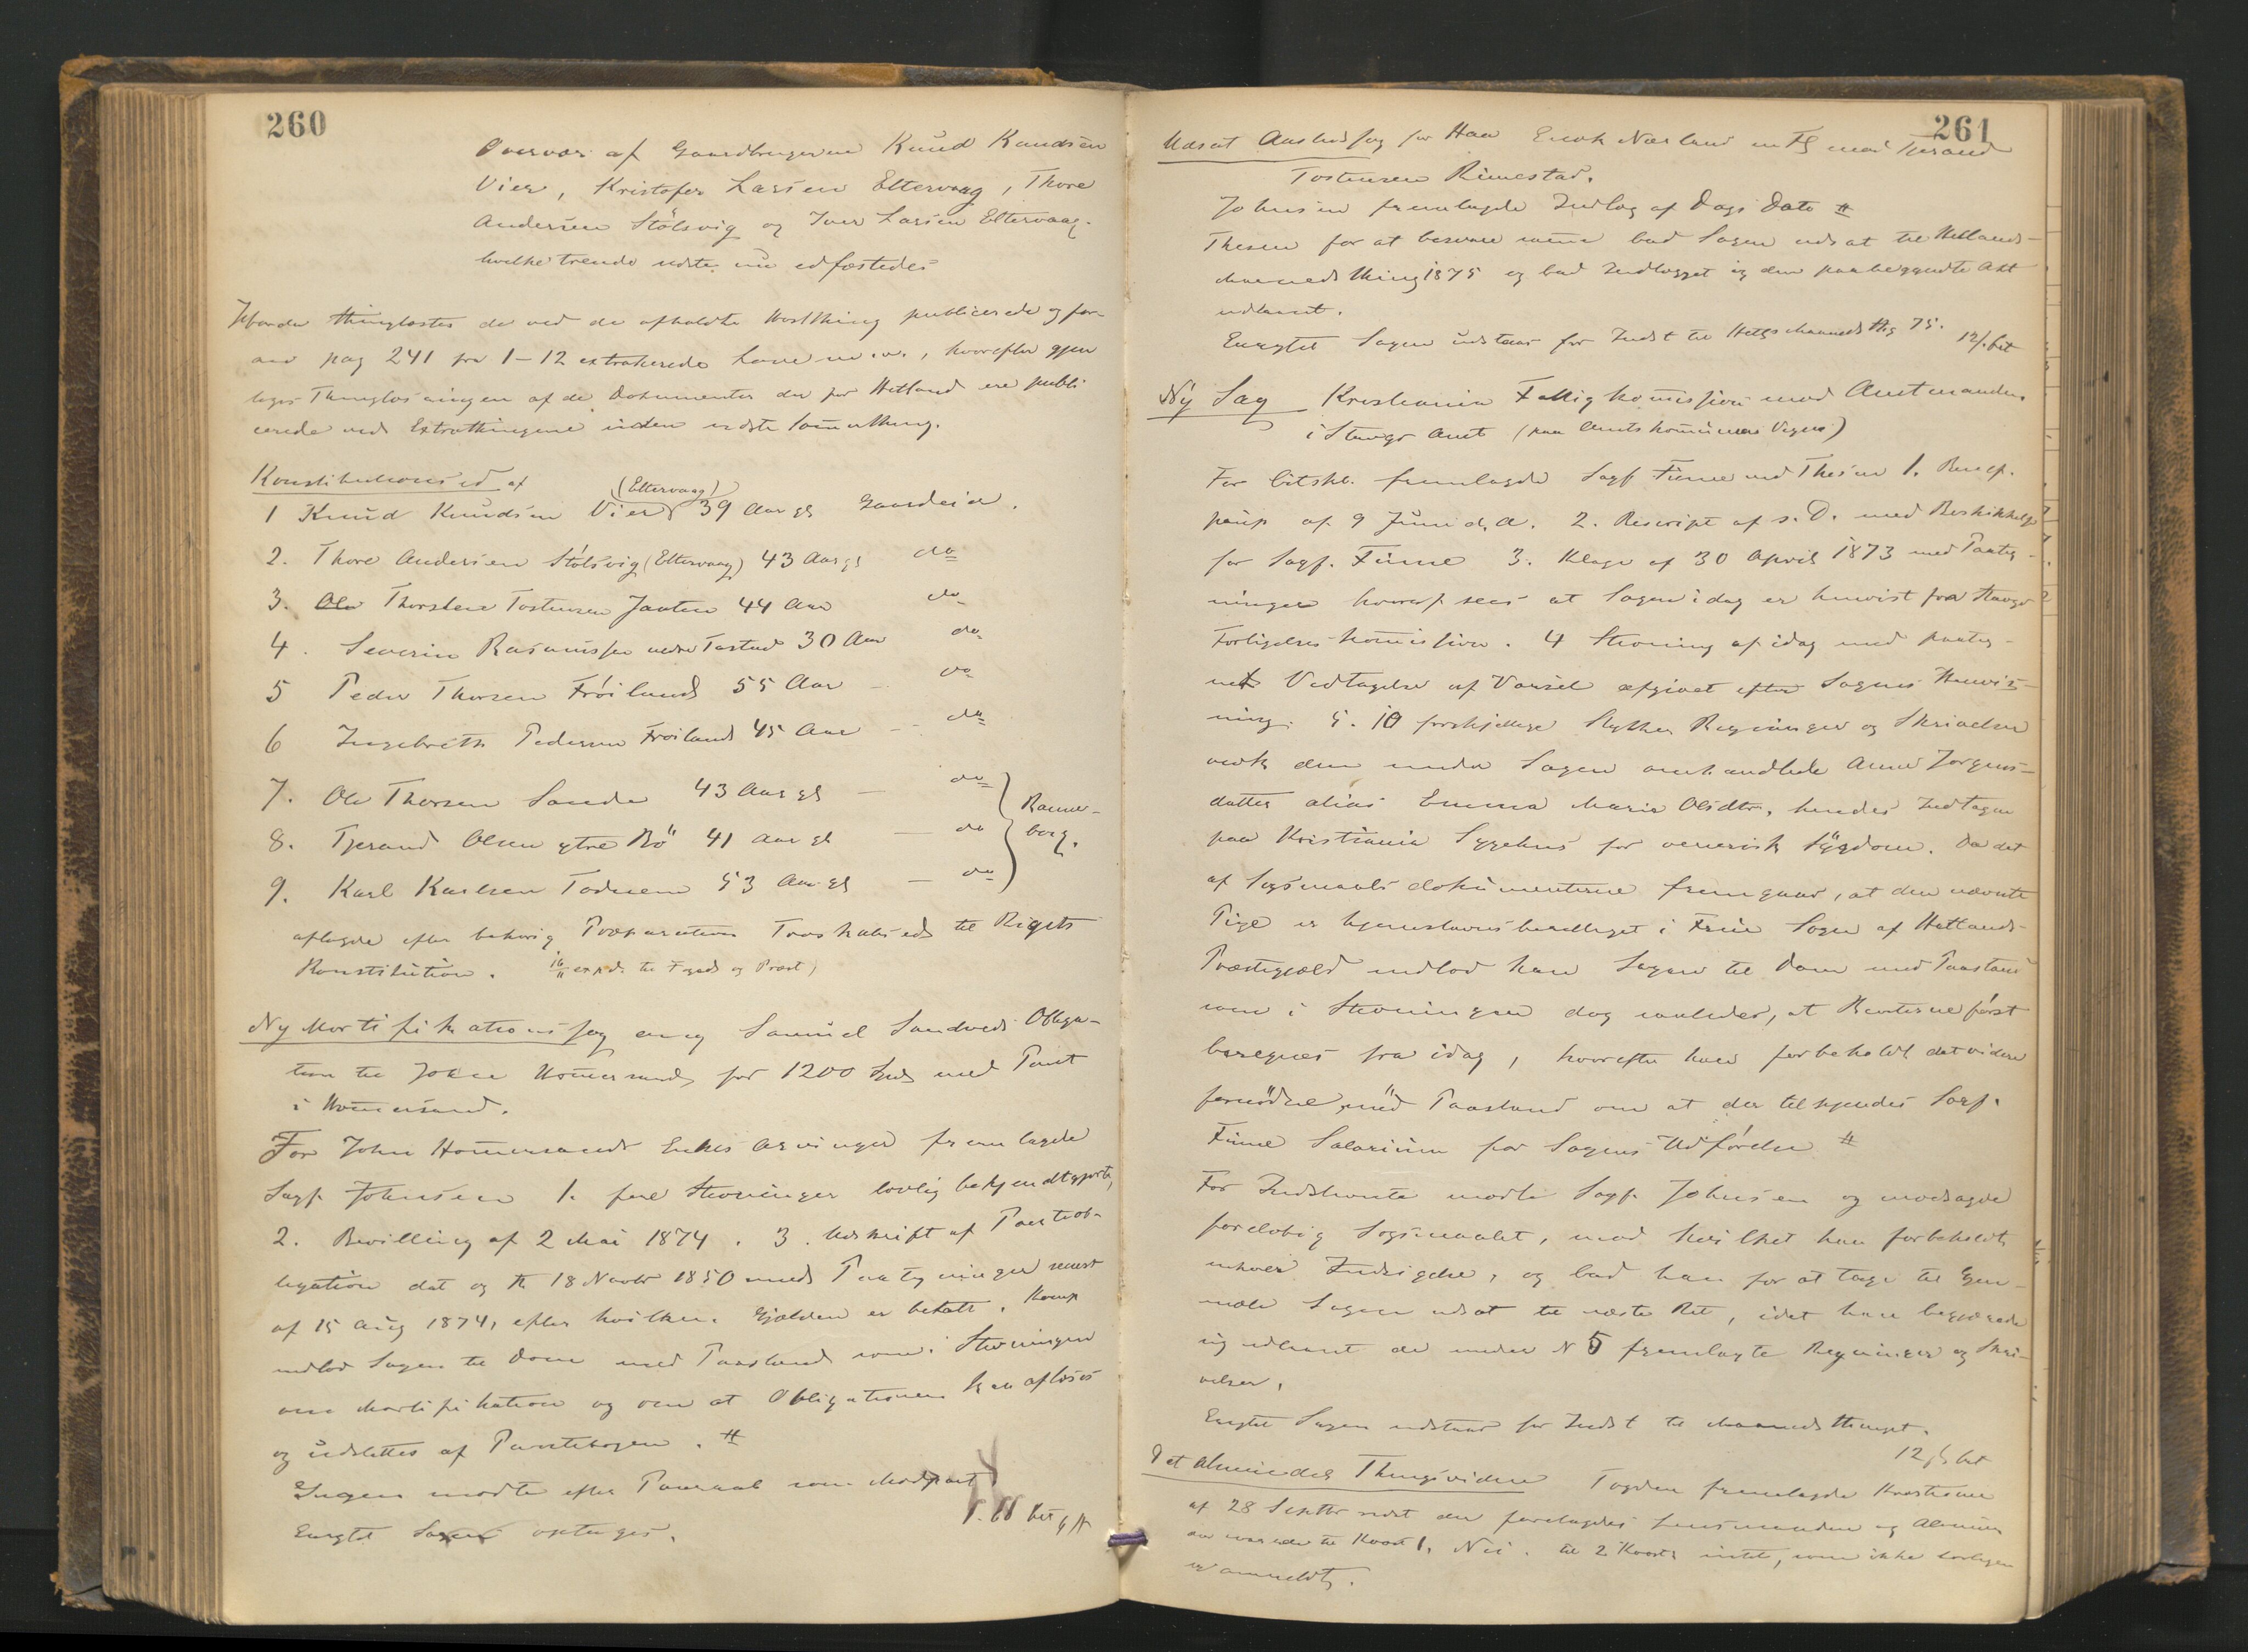 260
Overvær af Gaardbrugerne Knud Knudsen
Vier, Kristofer Larsen Eltervaag, Thore
Andersen Stölsvig og Iver Larsen Eltervaag.
hvilke trende sidste nu edfæstedes
thinglæstes de ved de afholdte publicerede og for-
an pag 241 fra 1-12 extraherede Love m. v., hvorefter gjen
toges Thinglæsningen af de Dokumenter der for Hetland ere publi
cerede ved Extrathingene siden sidste
Konstitutionsed af
1 Knud Knudsen Vier (Eltervaag) 39 Aar gl Gaardeier.
2. Thore Andersen Stölsvig (Eltervaag) 43 Aar gl do
3. Thorsten Tostensen Jaaten 44 Aar do
4. Severin Rasmussen nedre Tastad 30 Aar do
5 Peder Thorsen Fröiland 55 Aar - do
6 Ingebreth Pedersen Fröiland 45 Aar - do
7. Ole Thorsen Sande 43 Aar gl - do
Ranne-
8. Tjerand Olsen ytre Bö 41 Aar gl - do
berg.
9. Karl Karlsen Todnem 53 Aar gl - do
aflagde efter behörig Præparation Troskabsed til Rigets
Konstitution. 16/11 exp. til Foged og Præst)
Ny Mortifikationssag ang Samuel Sandveds Obliga-
tion til John Hommersand for 1200 Spd med Pant
i Hommersand.
For John Hommersands Enkes Arvinger fremlagde
Sagf. Johnsen 1. Stevninger lovlig bekjendtgjorte,
2. Bevilling af 2 Mai 1874. 3. Udskrift af Panteob-
ligation dat og th 18 Novbr 1850 med Paategninger senest
af 15 Aug 1874, efter hvilken Gjælden er betalt. Komp
indlod Sagen til Dom med Paastand som i Stevningen
om Mortifikation og om at Obligationen kan aflæses
og udslettes af Pantebogen. #
Ingen mödte efter Paaraab som Modpart
Eragtet Sagen optages.
261
Udsat Aastedssag for Haa Enok Nærland m Fl mod Tjerand
Tostensen Rimestad.
Johnsen fremlagde Indlæg af Dags Dato #
Thesen for at besvare samme bad Sagen udsat til Hetlands-
Maanedsthing 1875 og bad Indlægget og den paabegyndte Akt
udlaant.
Eragtet Sagen udstaar for Indst til Hetls Maanedsthg 75. 12/. bet
Ny Sag Kristiania Fattigkommission mod Amtmanden
i Stavgr Amt (paa Amtskommunens Vegne)
For Citskb. fremlagde Sagf Finne ved Thesen 1. Benef.
paup af 9 Juni d. A. 2. Rescript af s. D. med Beskikkelse
for Sagf. Finne 3. Klage af 30 April 1873 med Paateg-
ninger hvoraf sees at Sagen i dag er henvist fra Stavgr
Forligelseskommission. 4 Stevning af idag med paateg-
net Vedtagelse af Varsel afgivet efter Sagens Henvis-
ning. 5. 10 forskjellige Stykker Regninger og Skrivelser
vedk den under Sagen omhandlede Anne Jörgens-
datter alias Emma Marie Olsdtr. hendes Indtagen
paa Kristiania Sygehus for venerisk Sygdom. Da det
af Sögsmaalsdokumenterne fremgaar, at den nævnte
Pige er hjemstavnsberettiget i Frue Sogn af Hetlands-
Præstegjæld indlod han Sagen til Dom med Paastand
som i Stevningen dog saaledes, at Renterne först
beregnes fra idag, hvorefter han forbeholdt det videre
fornödne, med Paastand om at der tilkjendes Sagf.
Finne Salarium for Sagens Udförelse #
For Indstevnte mödte Sagf. Johnsen og modsagde
forelöbig Sögsmaalet, mod hvilket han forbeholdt
enhver Indsigelse, og bad han for at tage til Gjen-
mæle Sagen udsat til næste Ret, idet han begjærede
sig udlaant de under N 5 fremlagte Regninger og Skri-
velser.
Eragtet Sagen udstaar for Indst til Maanedsthinget.
12 /. bet
Det almindel Thingsvidne Fogden fremlagde Kvæstioner
af 28 Septbr sidst der forelagdes Lensmanden og Almuen
der svarede til Kvæst 1. Nei. til 2 Kvæst: intet, som ikke lovligen
er anmeldt.